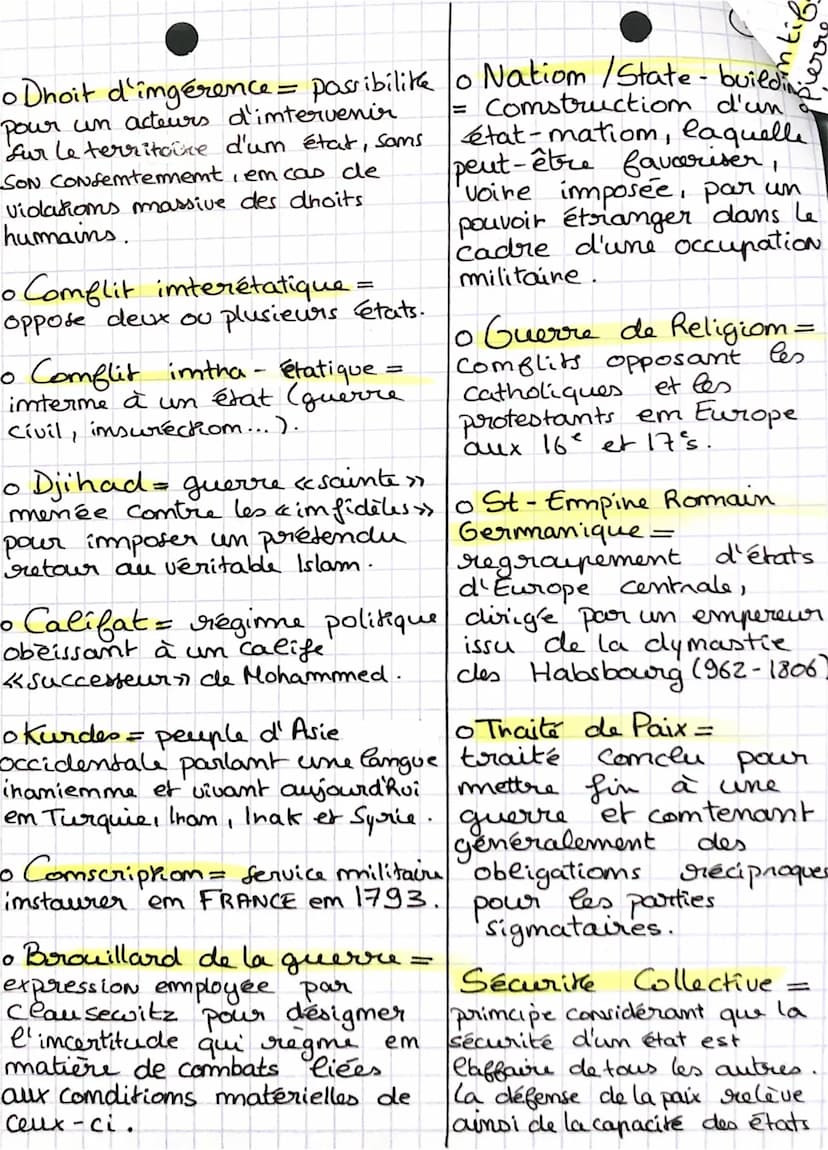 o Droit d'ingérence = possibilité
pour un acteurs d'intervenir
sur le territoire d'un état, sans
son consentement, en cas de
violations massive des droits
humains.
o Conflit interétatique =
oppose deux ou plusieurs États.
o Conflit intra - étatique =
interne à un état (guerre
civil, insurection...).
o Djihad = guerre «sainte»
menée contre les «infidèles»
pour imposer un prétendu
retour au véritable Islam.
o Califat = régime politique
obéissant à un calife
«successeur» de Mohammed.
o Kurdes = peuple d'Asie
occidentale parlant une langue
iranienne et vivant aujourd'hui
en Turquie, Iran, Irak et Syrie.
o Conscription = service militaire
instaurer en FRANCE en 1793.
o Brouillard de la guerre =
expression employée par
Clausewitz pour désigner
l'incertitude qui règne en
matière de combats liées
aux conditions matérielles de
ceux-ci.
o Nation / State - building
= Construction d'un
état-nation, laquelle
peut-être favoriser,
voire imposée, par un
pouvoir étranger dans le
cadre d'une occupation
militaire.
o Guerre de Religion =
conflits opposant les
catholiques et les
protestants en Europe
aux 16e et 17es.
o St - Empire Romain
Germanique =
regroupement d'états
d'Europe centrale,
dirigé par un empereur
issu de la dynastie
des Habsbourg (962-1806)
o Traité de Paix =
traité conclu pour
mettre fin à une
guerre et contenant
généralement des
obligations réciproques
pour les parties
signataires.
Sécurité Collective =
principe considérant que la
sécurité d'un état est
l'affaire de tous les autres.
la défense de la paix relève
ainsi de la capacité des états